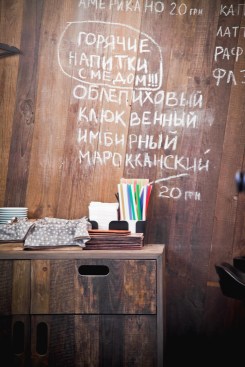 АМЕРИКАНО 20 ГРН
ГОРЯЧИЕ
НАПИТКИ
С МЕДОМ!!!
ОБЛЕПИХОВЫЙ
КЛЮКВЕННЫЙ
ИМБИРНЫЙ
МАРОККАНСКИЙ
20 ГРН